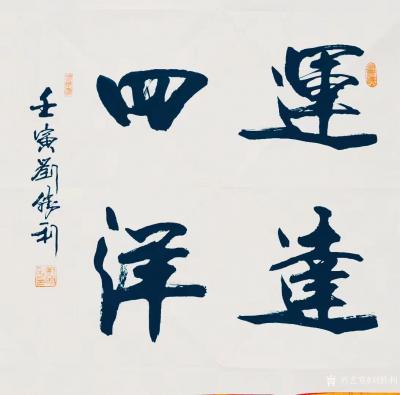 運達
四洋
壬寅劉勝利